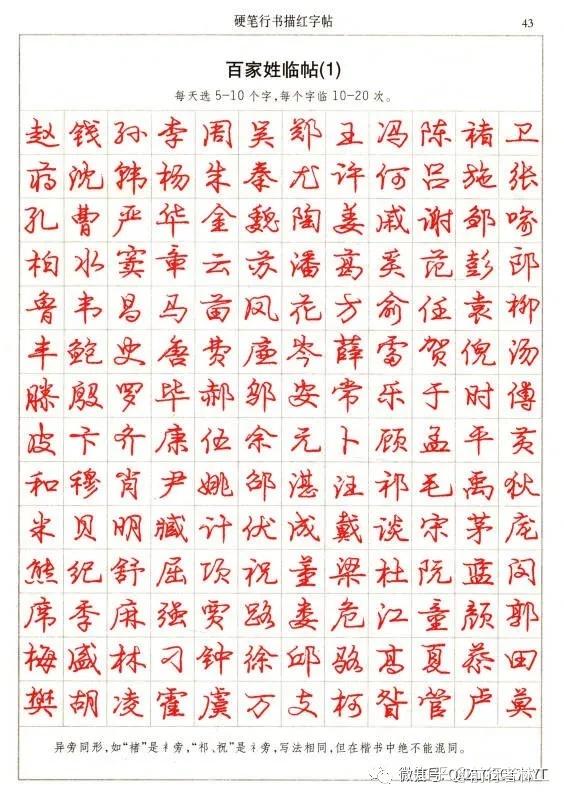 硬笔行书描红字帖 43
百家姓临帖(1)
每天选5-10个字,每个字临10-20次。
赵钱孙李周吴郑王冯陈褚卫
蒋沈韩杨朱秦尤许何吕施张
孔曹严华金魏陶姜戚谢邹喻
柏水窦章云苏潘葛奚范彭郎
鲁韦昌马苗凤花方俞任袁柳
丰鲍史唐费廉岑薛雷贺倪汤
滕殷罗毕郝邬安常乐于时傅
皮卞齐康伍余元卜顾孟平黄
和穆肖尹姚邵湛汪祁毛禹狄
米贝明臧计伏成戴谈宋茅庞
熊纪舒屈项祝董梁杜阮蓝闵
席季麻强贾路娄危江童颜郭
梅盛林刁钟徐邱骆高夏蔡田
樊胡凌霍虞万支柯昝管卢莫
异旁同形,如“褚”是衤旁,“祁、祝”是礻旁,写法相同,但在楷书中绝不能混同。
微信号: